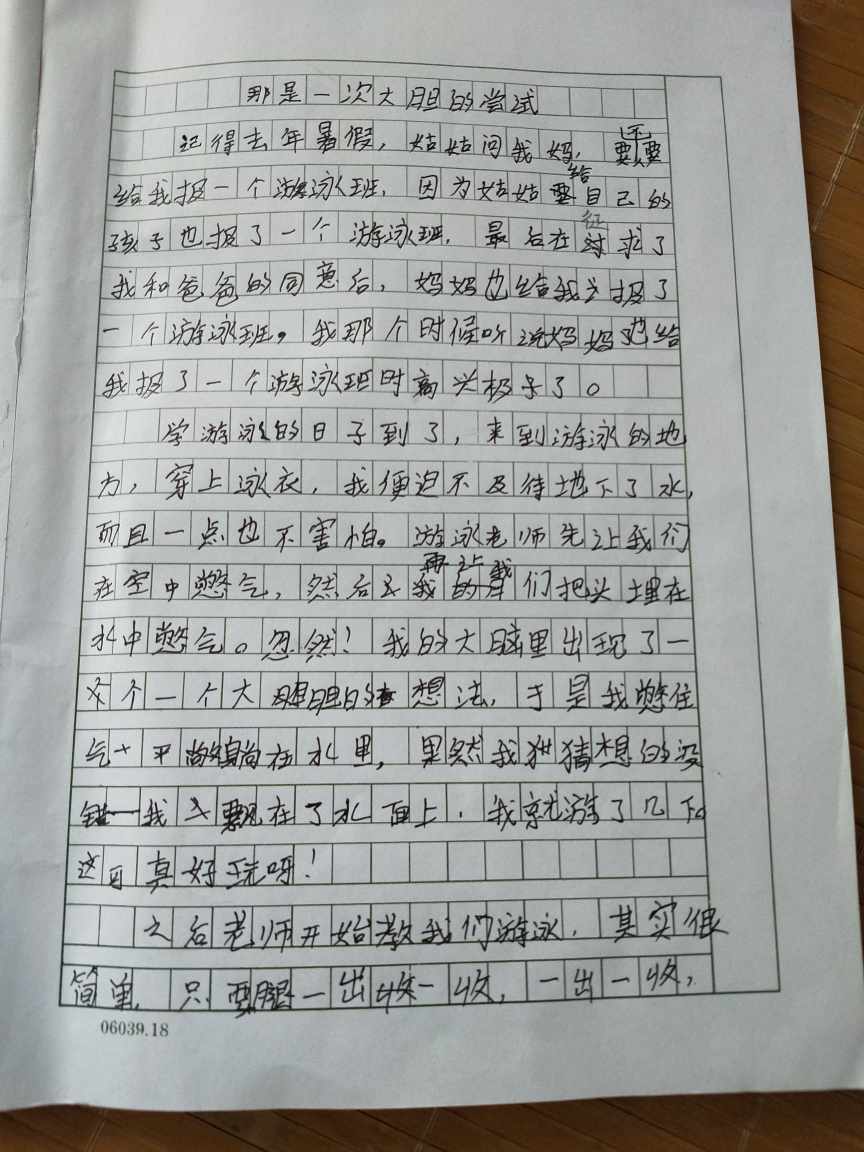 那是一次大胆的尝试
记得去年暑假，姑姑问我妈，要不要
给我报一个游泳班，因为姑姑给自己的
孩子也报了一个游泳班，最后在征求了
我和爸爸的同意后，妈妈也给我报了
一个游泳班。我那个时候听说妈妈也给
我报了一个游泳班时高兴极了。
学游泳的日子到了，来到游泳的地
方，穿上泳衣，我便迫不及待地下了水，
而且一点也不害怕。游泳老师先让我们
在空中憋气，然后再让我们把头埋在
水中憋气。忽然！我的大脑里出现了一
个一个大胆的想法，于是我憋住
气平躺在水里，果然我猜想的没
错我飘在了水面上，我就游了几下
这可真好玩呀！
之后老师开始教我们游泳，其实很
简单，只要腿一出一收，一出一收，
06039.18